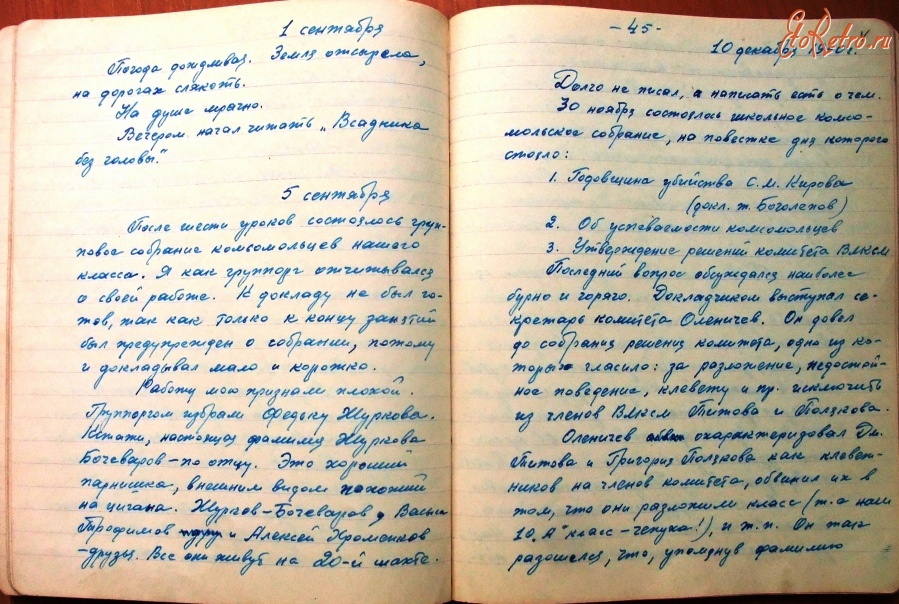 1 сентября
Погода дождливая. Земля отсырела,
на дорогах слякоть.
На душе мрачно.
Вечером начал читать „Всадника
без головы."
5 сентября
После шести уроков состоялось груп-
повое собрание комсомольцев нашего
класса. Я как группорг отчитывался
о своей работе. К докладу не был го-
тов, так как только к концу занятий
был предупрежден о собрании, потому
и докладывал мало и коротко.
Работу мою признали плохой.
Группоргом избрали Федьку Журкова.
Кстати, настоящая фамилия Журкова
Бочеваров – по отцу. Это хороший
парнишка, внешним видом похожий
на цыгана. Журков-Бочеваров, Васька
Трофимов и Алексей Хроменков
– друзья. Все они живут на 20-й шахте.
- 45 -
10 декабря
Долго не писал, а написать есть о чем.
30 ноября состоялось школьное комсо-
мольское собрание, на повестке дня которого
стояло:
1. Годовщина убийства С. М. Кирова
(докл. т. Боголепов)
2. Об успеваемости комсомольцев
3. Утверждение решений комитета ВЛКСМ
Последний вопрос обсуждался наиболее
бурно и горячо. Докладчиком выступал се-
кретарь комитета Оленичев. Он довел
до собрания решения комитета, одно из ко-
торых гласило: за разложение, недостой-
ное поведение, клевету и пр. исключить
из членов ВЛКСМ Титова и Полякова.
Оленичев охарактеризовал Дм.
Титова и Григория Полякова как клевет-
ников на членов комитета, обвинил их в
том, что они разложили класс (т.а наш
10 „А" класс – чепуха!), и т. п. Он так
разошелся, что, упомянув фамилию
EtoRetro.ru